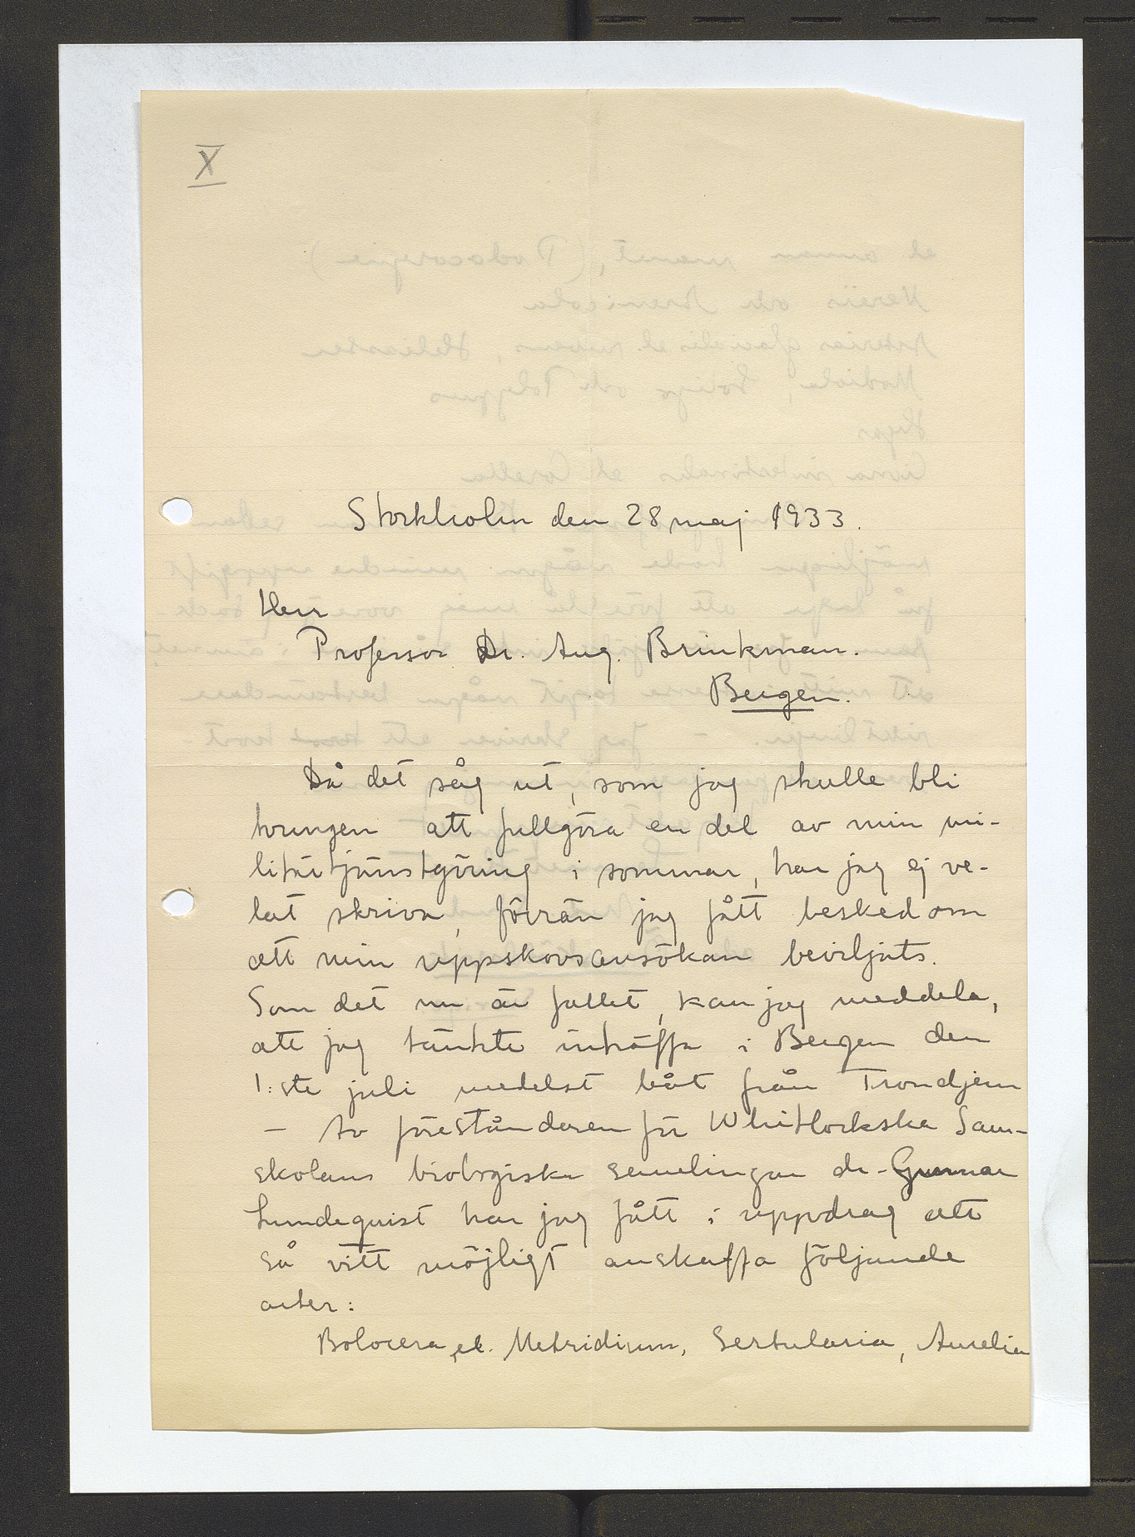 X
Stockholm den 28 maj 1933.
Herr
Professor Dr. Aug. Brinkman.
Bergen.
Då det såg ut, som jag skulle bli
tvungen att fullgöra en del av min mi-
litärtjänstgöring i sommar, har jag ej ve-
lat skriva, förrän jag fått besked om
att min uppskovsansökan beviljats.
Som det nu är fallet, kan jag meddela,
att jag tänkte inträffa i Bergen den
1:ste juli medelst båt från Trondjem
- Av föreståndaren för Whitlockska Sam-
skolans biologiska samlingar dr. Gunnar
Lundequist har jag fått i uppdrag att
så vitt möjligt anskaffa följande
arter:
Bolocera el. Metridium, Sertularia, Aurelia